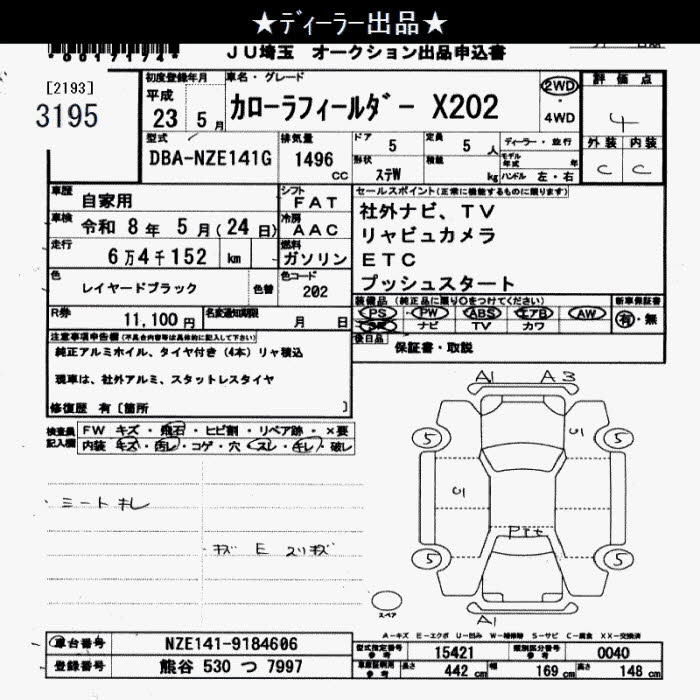 ★ディーラー出品★
JU埼玉 オークション出品申込書
[2193]
3195
初度登録年月
平成
23 5月
車名・グレード
カローラフィールダー X202
2WD
・
4WD
評価点
4
外装 内装
C C
型式
DBA-NZE141G
排気量
1496
CC
ドア
5
定員
5 人
形状
ステW
積載
kg
ディーラー・並行
モデル年式 年
ハンドル 左・右
車歴
自家用
シフト
FAT
車検
令和 8年 5月(24日)
冷房
AAC
走行
6万4千152 km
燃料
ガソリン
色
レイヤードブラック
色替
色コード
202
R券
11,100円
名変通知期限
月 日
セールスポイント(正常に機能するものに限ります)
社外ナビ、TV
リャビュカメラ
ETC
プッシュスタート
装備品(純正品に限り○をつけてください)
PS PW ABS エアB AW
SR ナビ TV カワ
新車保証書
有・無
後日品
保証書・取説
注意事項申告欄(不具合内容等は具体的に記入して下さい)
純正アルミホイル、タイヤ付き(4本)リャ積込
現車は、社外アルミ、スタットレスタイヤ
修復歴 有[箇所 ]
検査員記入欄
FW キズ・飛石・ヒビ割・リペア跡・×要
内装 キズ・汚レ・コゲ・穴・スレ・キレ・破レ
・シートキレ
・キズ E スリキズ
A1 A3
5 5
U1
U1
5 5
A1
スペア
A-キズ E-エクボ U-凹み W-補修跡 S-サビ C-腐食 XX-交換済
車台番号
NZE141-9184606
登録番号
熊谷 530 つ 7997
型式指定番号 参考
15421
類別区分番号 参考
0040
車庫証明用 参考
長さ 442 cm 幅 169 cm 高さ 148 cm